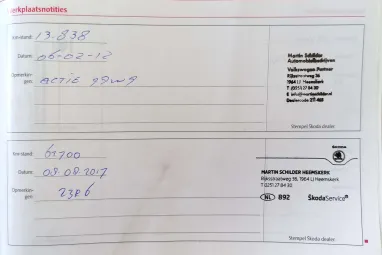 Werkplaatsnotities
Km-stand: 13.838
Datum: 06-02-12
Opmerkingen: ACTIE 99W9
Martin Schilder
Automobielbedrijven
Volkswagen Partner
Rijksstraatweg 36
1964 LJ Heemskerk
T (0251) 27 84 30
Stempel Skoda dealer
Km-stand: 61700
Datum: 08.08.2017
Opmerkingen: 23R6
MARTIN SCHILDER HEEMSKERK
Rijksstraatweg 36, 1964 LJ Heemskerk
T 0251 27 84 30
NL 892 ŠkodaService
Stempel Skoda dealer